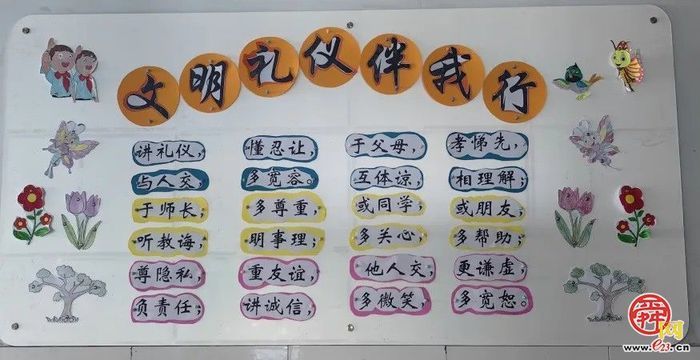 文明礼仪伴我行
讲礼仪，懂忍让，于父母，孝悌先，
与人交，多宽容。互体谅，相理解；
于师长；多尊重，或同学；或朋友；
听教诲；明事理；多关心，多帮助；
尊隐私，重友谊，他人交，更谦虚，
负责任；讲诚信，多微笑，多宽恕。
舜网
e23.cn